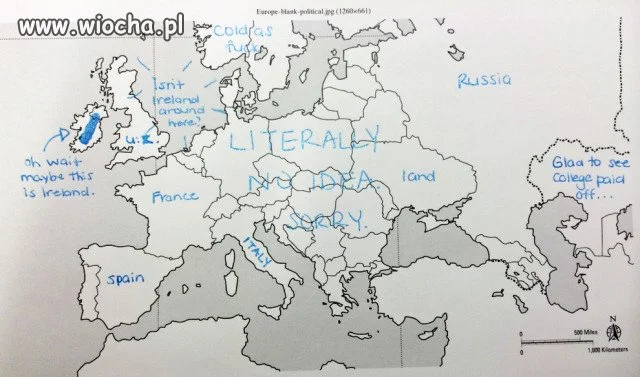 Europe-blank-political.jpg (1260x661)
www.wiocha.pl
Cold as
fuck
Russia
Isn't
Ireland
around
here?
U.K.
LITERALLY
NO IDEA.
SORRY.
oh wait
maybe this
is Ireland.
France
land
Glad to see
College paid
off...
ITALY
Spain
0
500 Miles
0
1,000 Kilometers
N